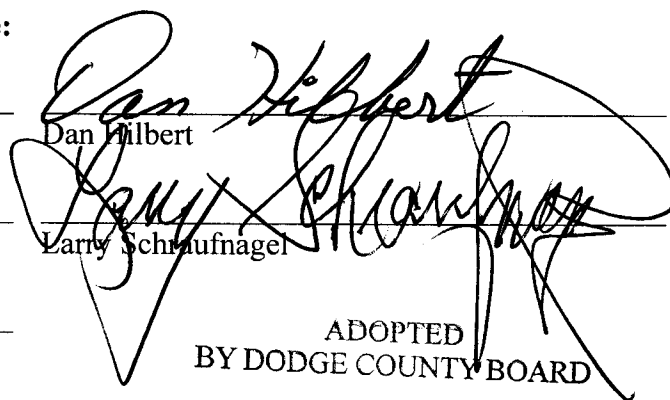 :
Dan Hilbert
Dan Hilbert
Larry Schraufnagel
Larry Schraufnagel
ADOPTED
BY DODGE COUNTY BOARD